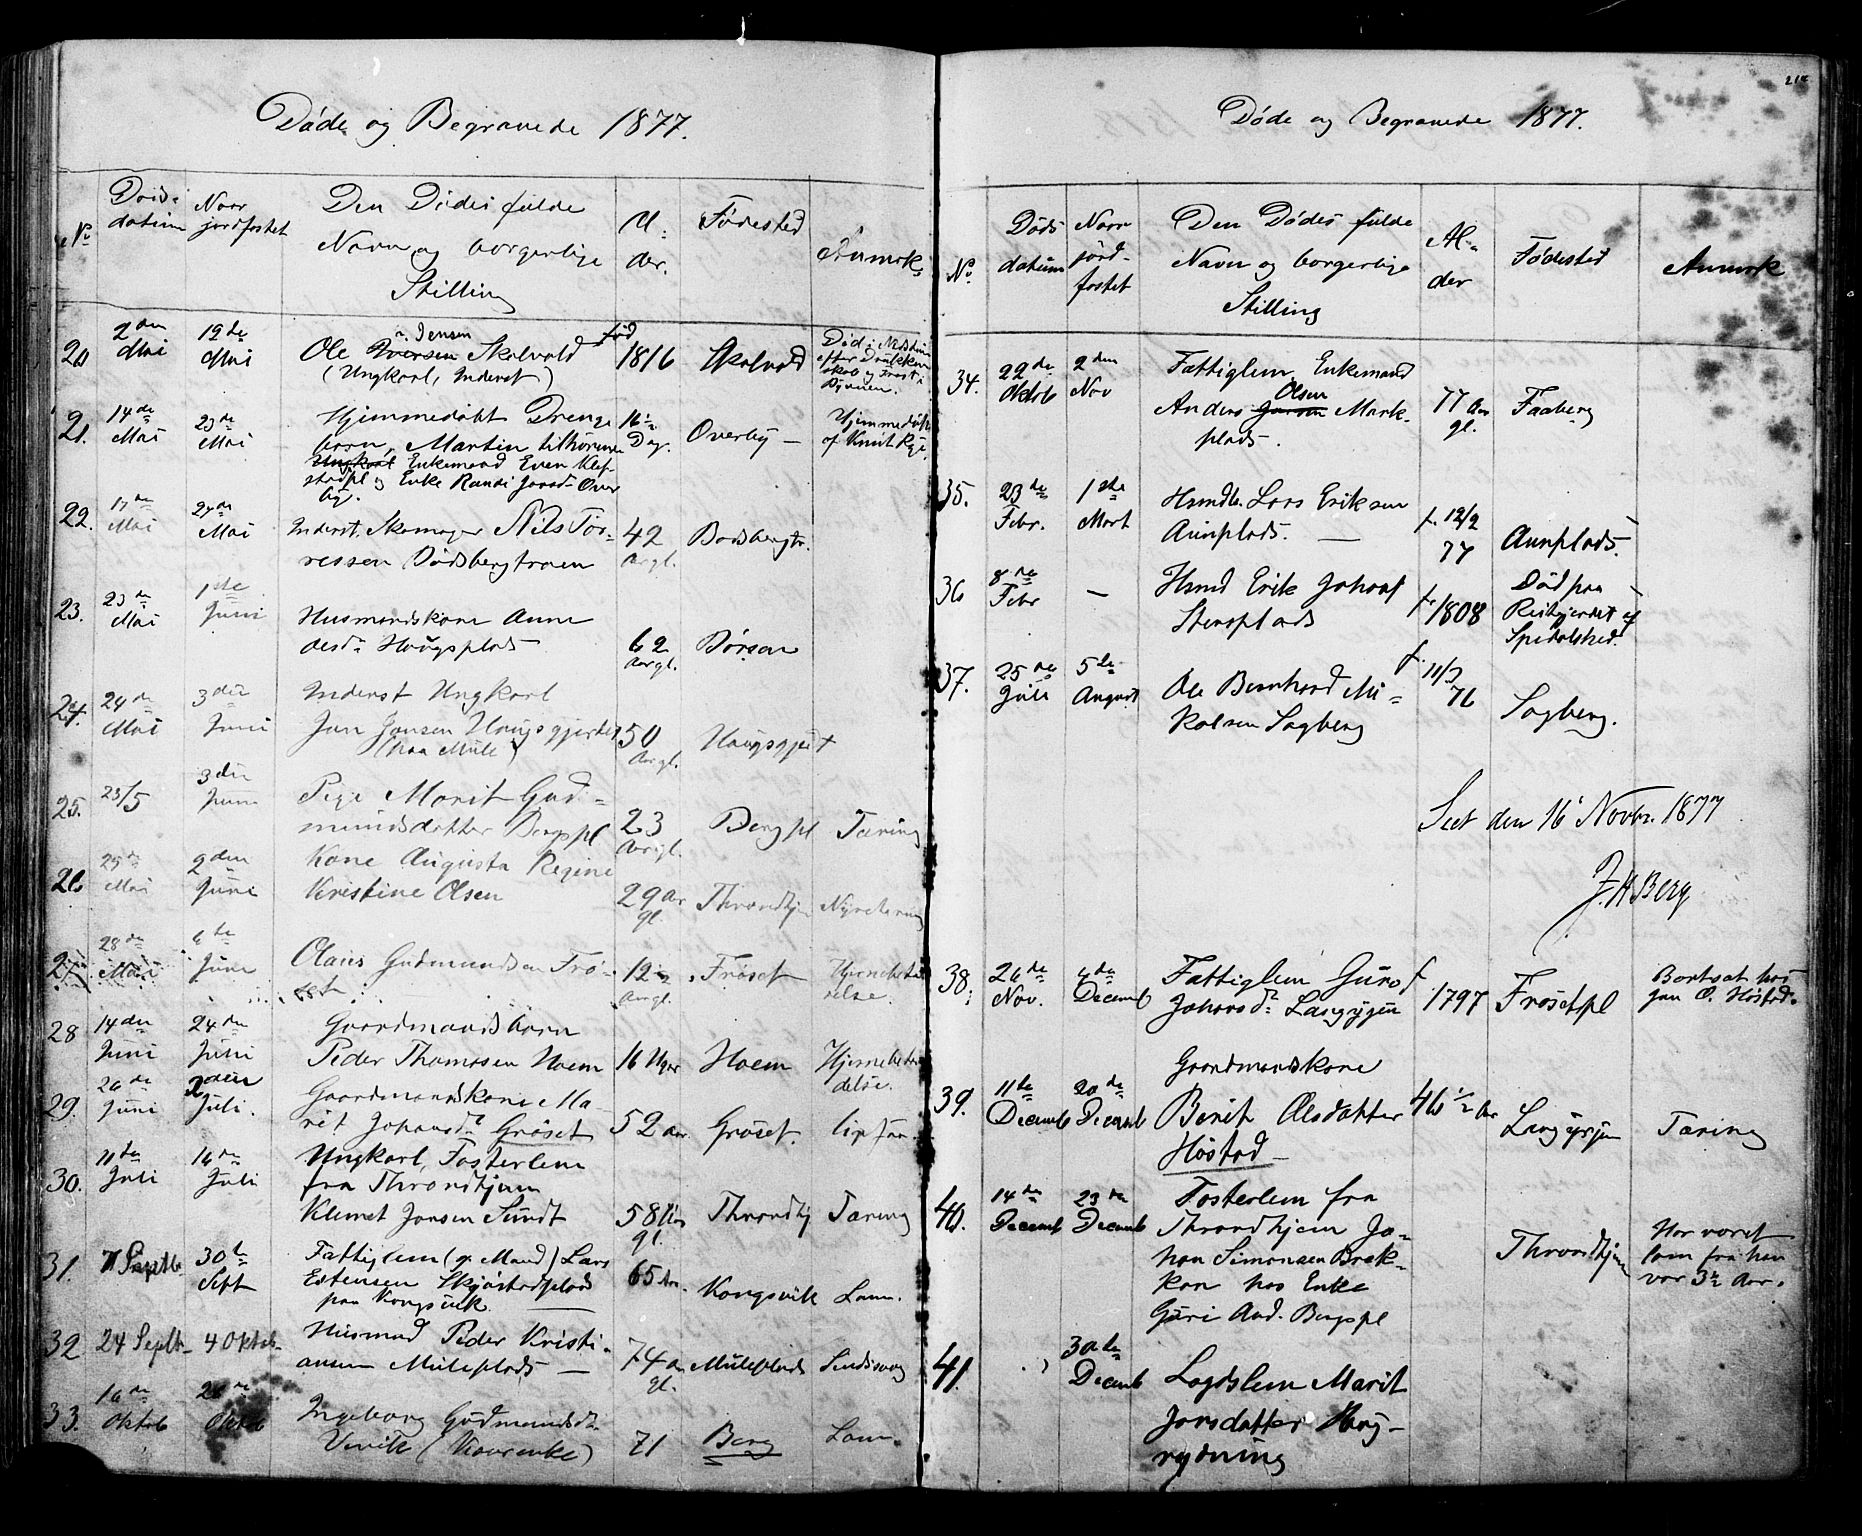 Døde og Begravede 1877.
No
Døds-
datum
Naar
jordfæstet
Den Dødes fulde
Navn og borgerlige
Stilling
Al-
der.
Fødested
Anmærk.
20
2den
Mai
19de
Mai
Ole Iversen Jensen Skalvold
(Ungkarl, Inderst)
fød
1816
Skalvold
21.
14de
Mai
23de
Mai
Hjemmedøbt Drenge
barn, Martin tilhørende
Ungkarl Enkemand Even Klef-
stadpl og Enke Randi Over
by.
16
Dag.
Overby –
Hjemmedøbt
af Knut Rye.
22.
17de
Mai
24de
Mai
Inderst. Skomager Nils Tor-
ressen Bødsbergtrøen
42
Aar gl.
Bødsbergtr.
23.
23de
Mai
1ste
Juni
Husmandskone Anne
Haugsplads
62
Aar gl.
Børsen
24.
24de
Mai
3die
Juni
Inderst Ungkarl
Jon Jonsen Haugsgjerdet
(paa Mule)
50
Aar gl.
Haugsgjerdet
25.
23/5
3die
Juni
Pige Marit Gud-
mundsdatter Bergspl
23
Aar gl.
Bergpl
Tæring
26
25de
Mai
2den
Juni
Kone Augusta Regine
Kristine Olsen
29 Aar
gl.
Throndhjem
27.
28de
Mai
6te
Juni
Olaus Gudmundsen Frø-
set
12
Aar gl.
Frøset
Hjernebetæn-
delse.
28
14den
Juni
24de
Juni
Gaardmandsbarn
Peder Thomasen Hoem
16 Uger
Hoem
Hjernebetæn-
delse.
29.
26de
Juni
2den
Juli.
Gaardmandskone Ma-
rit Johansd. Grøset
52 aar
Grøset.
30.
11te
Juli
16de
Juli
Ungkarl, Fosterlem
fra Throndhjem
Klemet Jonsen Sundt
58 Aar
gl.
Throndhj
Tæring
31.
7 Septb
30te
Sept
Fattiglem (g. Mand) Lars
Estensen Skjøstadplads
paa Kongsvik
65 Aar
Kongsvik
Lam.
32
24 Septb
4 Oktob
Husmand Peder Kristi-
ansen Muleplads –
74 a
gl.
Muleplads
33.
16de
Oktob
26de
Oktob
Ingeborg Gudmundsd.
Vevik (Kaarenke)
71
Berg
Lam.
Døde og Begravede 1877.
No
Døds
datum
Naar
jord-
fæstet
Den Dødes fulde
Navn og borgerlige
Stilling
Al-
der
Fødested
Anmærk
34.
22de
Oktob
2den
Nov
Fattiglem, Enkemand
Anders Olsen Mark-
plads.
77 Aar
gl.
Faaberg
35.
23de
Febr.
1ste
Mart
Husmdb. Lars Eriksen
Aunplads. –
f. 12/2
77
Aunplads.
36
8de
Febr
–
Husmd Erik Johans
Stensplads
f. 1808
Død paa
Reitgjerdet af
Spedalskhed.
37.
25de
Juli
5te
August
Ole Bernhard Mi-
kalsen Sagberg
f. 11/7
76
Sagberg.
Seet den 16 Novbr. 1877
J. H Berg
38.
26de
Nov.
Decemb
Fattiglem Guro
Johansd. Langøyen
f
1797
Frøsetpl
Bortsat hos
Jon O. Høstad.
39.
11te
Decemb
20de
Decemb
Gaardmandskone
Berit Olsdatter
Høstad –
46 1/2 Aar
Langøyen
Tæring
40.
14de
Decemb
23de
Decemb
Fosterlem fra
Throndhjem Jo-
han Simonsen Brek-
kan hos Enke
Guri And. Bergspl
Throndhjem
Har været
lam fra han
var 3½ Aar.
41.
30te
Decemb
Lægdslem Marit
Jonsdatter Haug-
rydning